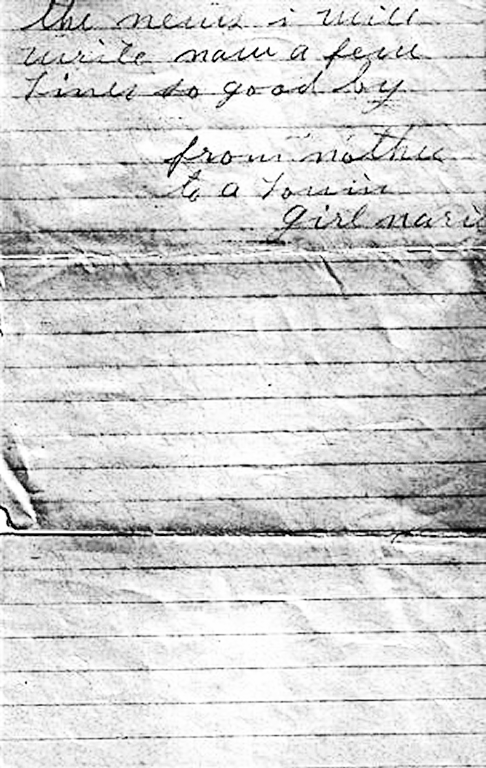 the news i will
write now a few
lines so good by
from mother
to a lovin
girl marie